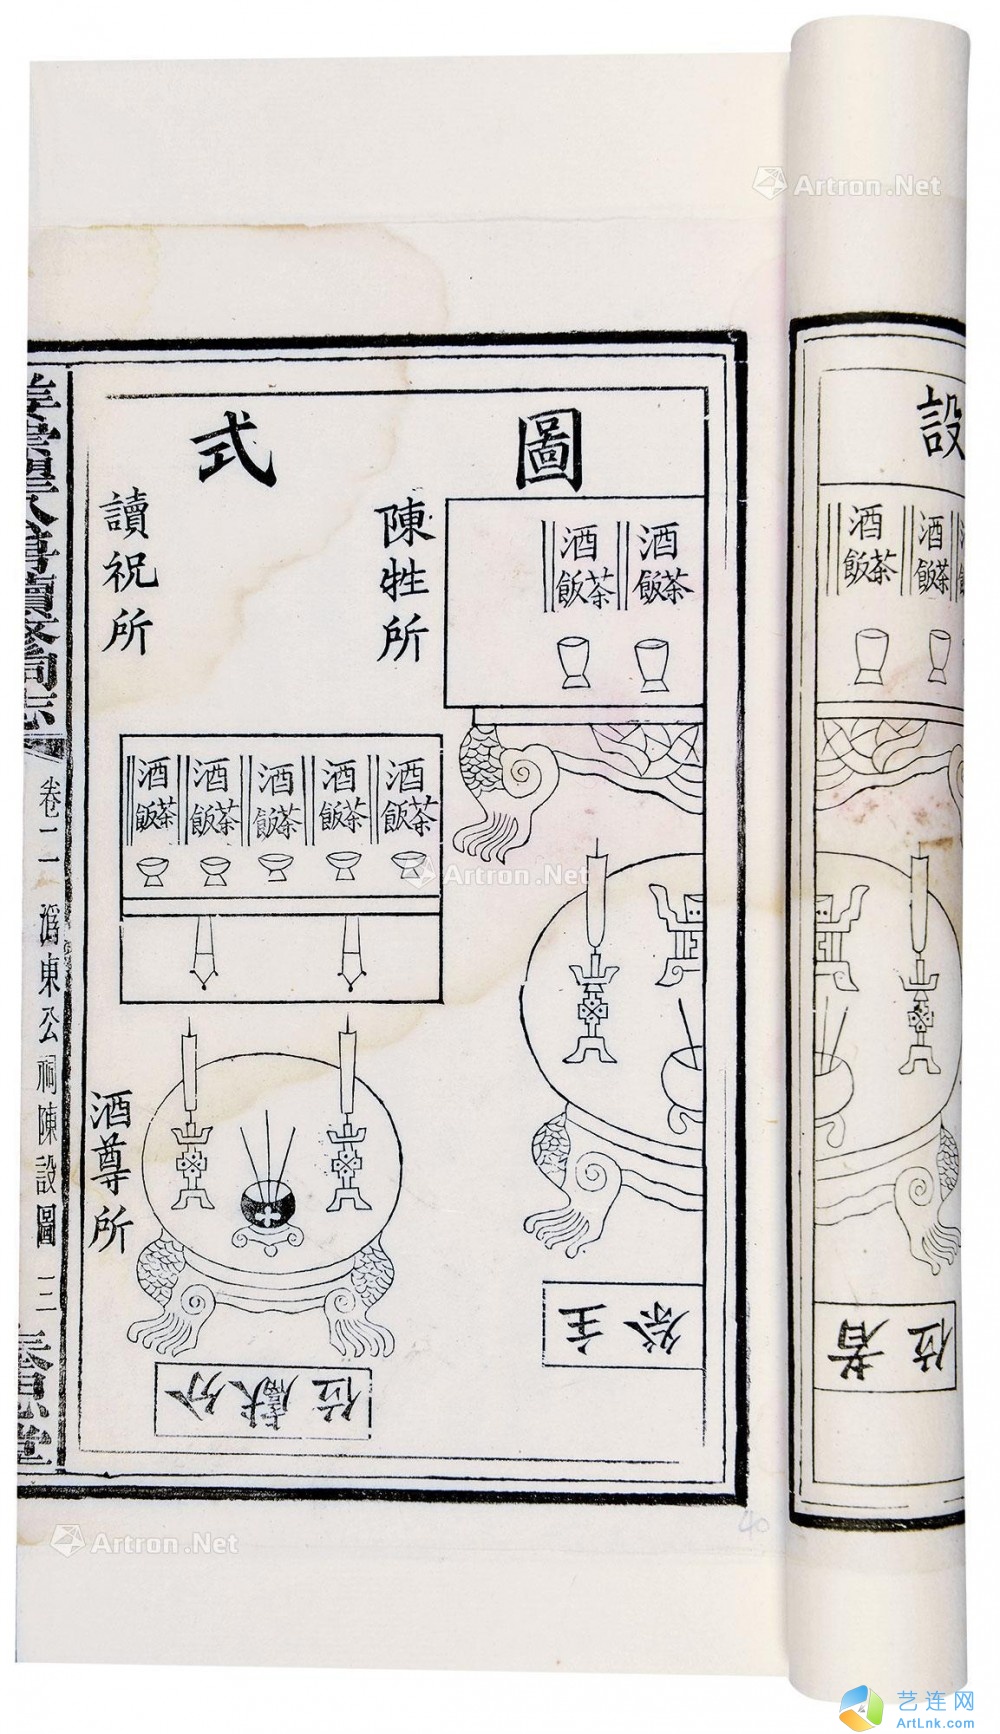 設
酒
茶飯
酒
茶飯
圖式
酒
茶飯
酒
茶飯
陳牲所
讀祝所
酒
茶飯
酒
茶飯
酒
茶飯
酒
茶飯
酒
茶飯
酒尊所
主祭
者位
分獻位
卷二
潙東公祠陳設圖
三
40
Artron.Net
Artron.Net
Artron.Net
艺连网
ArtLnk.com